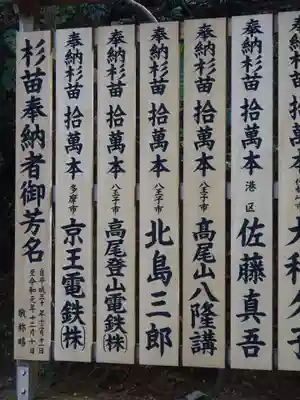 奉納杉苗 拾萬本 港区 佐藤真吾
奉納杉苗 拾萬本 八王子市 髙尾山八隆講
奉納杉苗 拾萬本 八王子市 北島三郎
奉納杉苗 拾萬本 八王子市 高尾登山電鉄(株)
奉納杉苗 拾萬本 多摩市 京王電鉄(株)
杉苗奉納者御芳名
自平成三十年十二月十一日
至令和元年十二月十日
敬称略